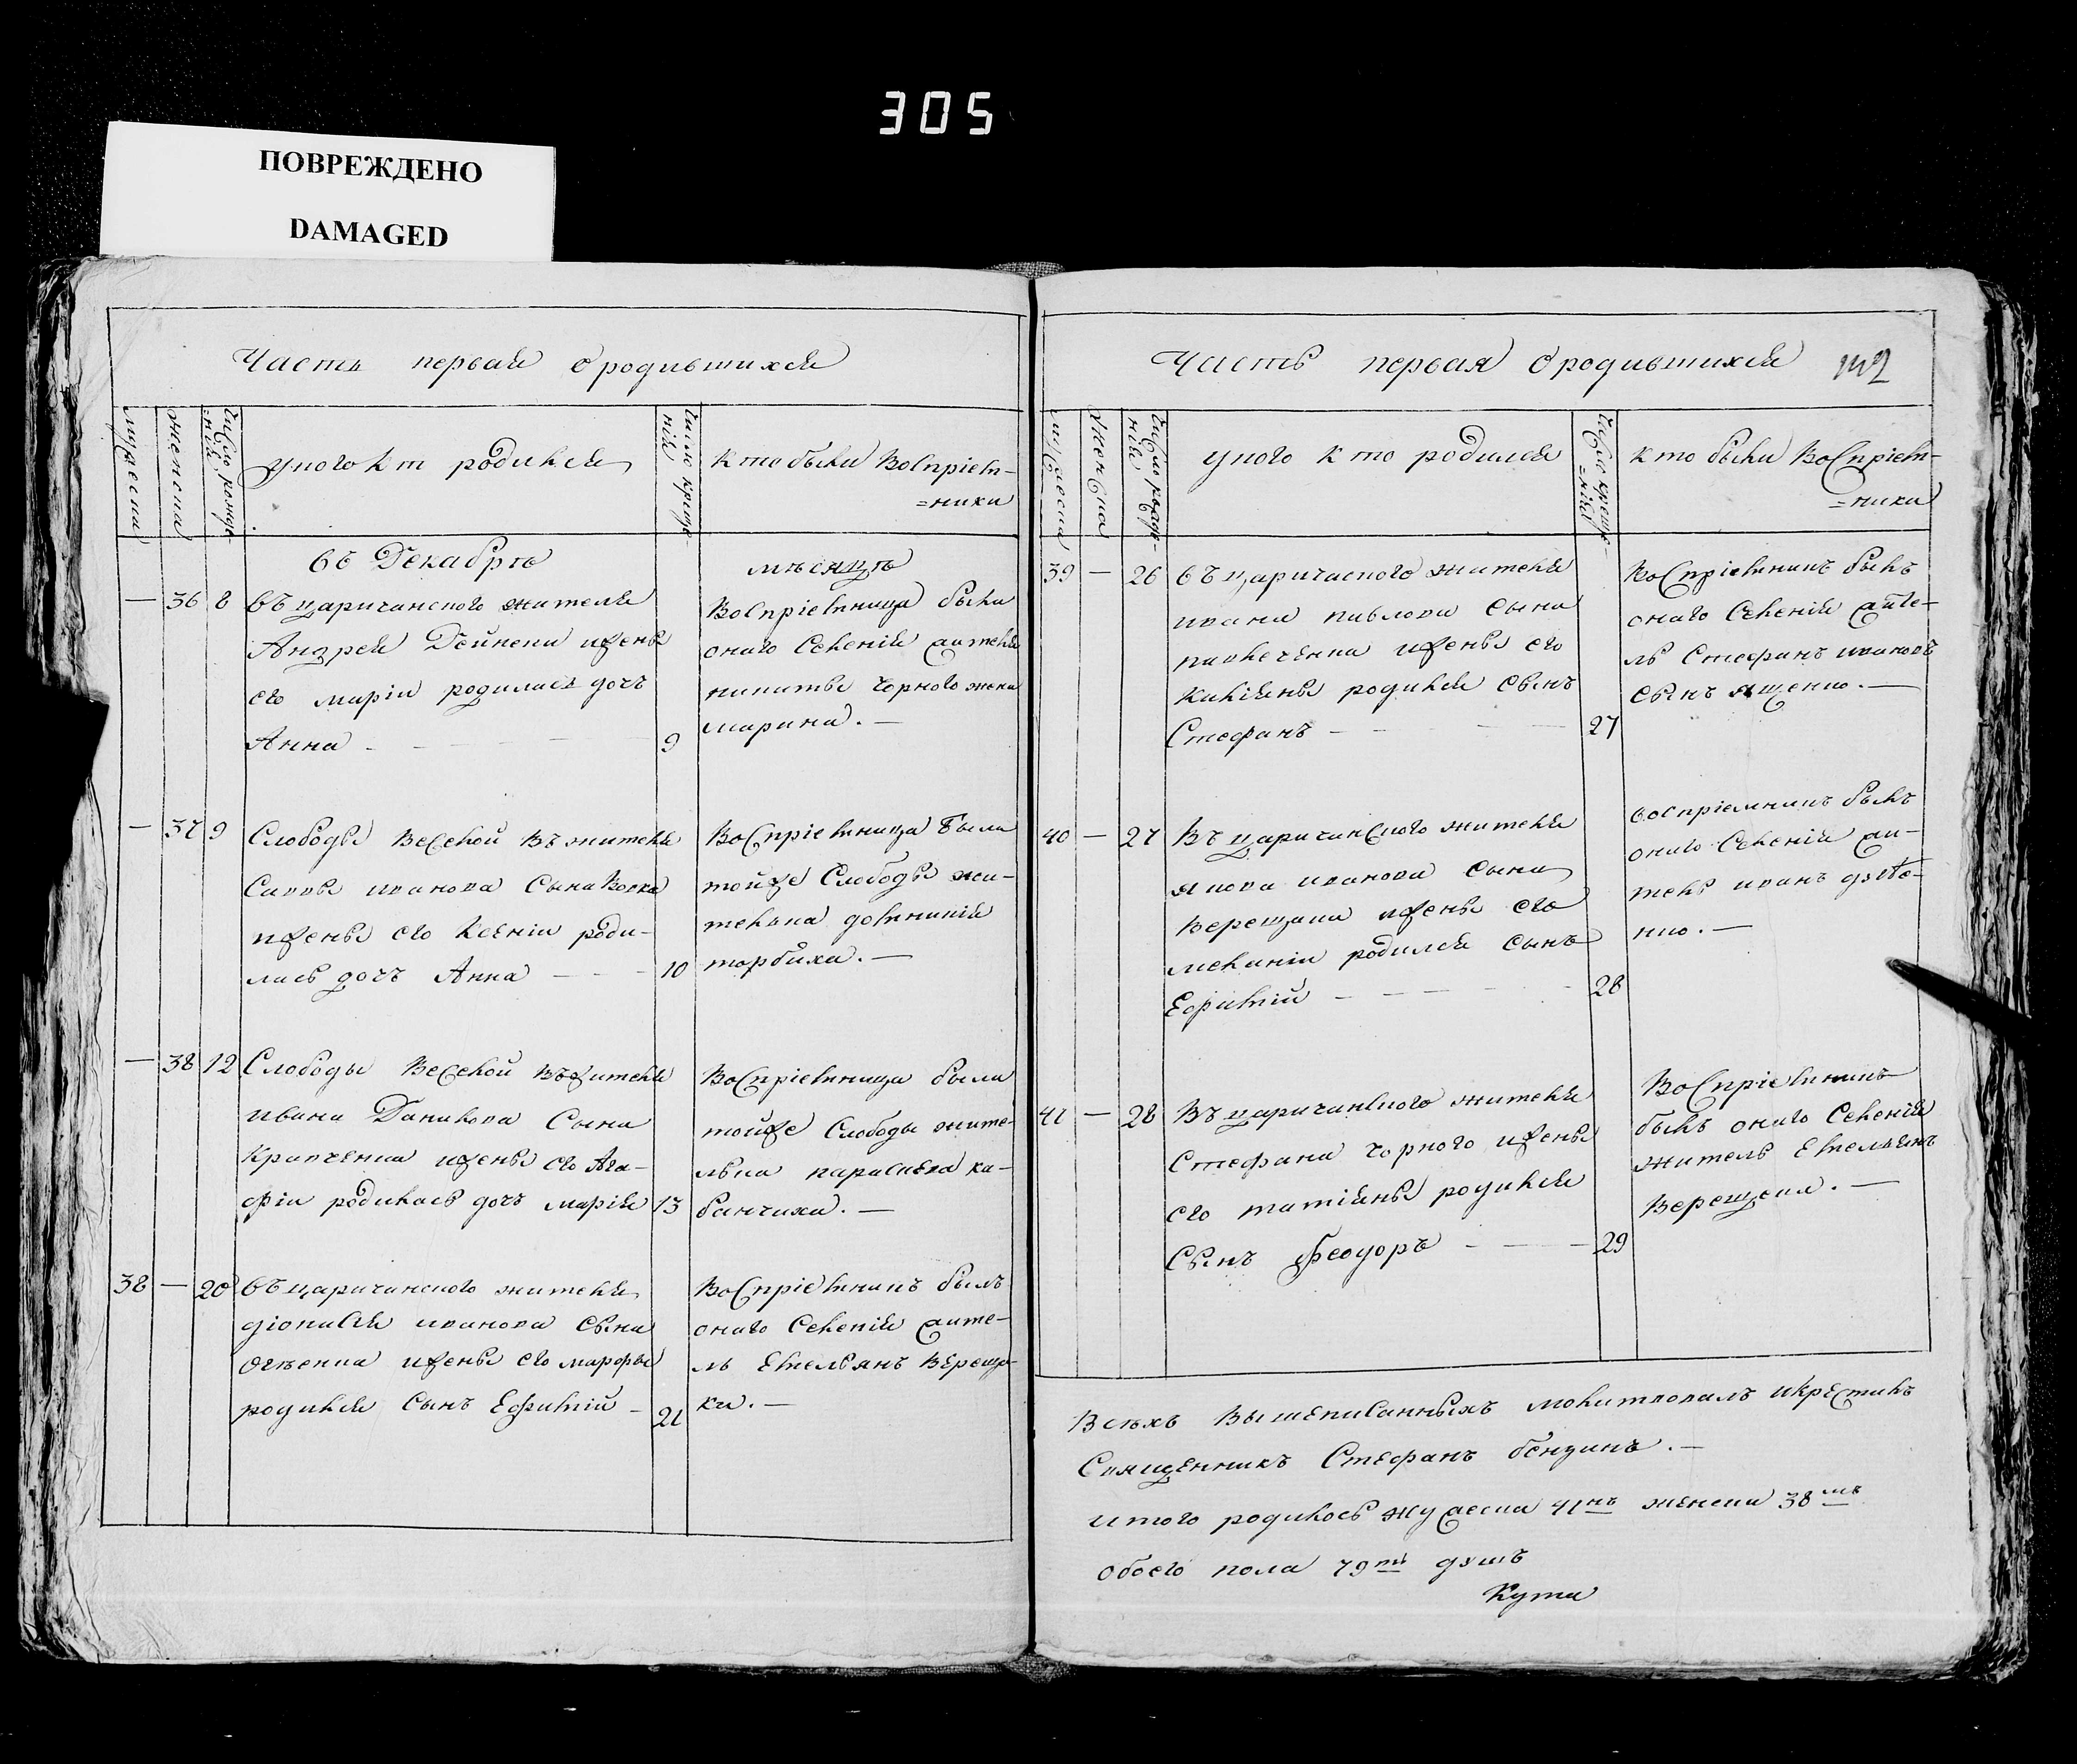 305
ПОВРЕЖДЕНО
DAMAGED
Часть первая о родившихся
мужеска
женска
число рожде-
нія
у кого кт родился
число креще-
нія
кто были воспріем-
=ники
въ Декабрѣ
мѣсяцѣ
— 36 8 въ царичанского жителя
Андрея Дейнеки и жены
его маріи родилась дочь
Анна — 9
Воспріемница была
онаго селенія жителя
никиты Чорного жена
марина. —
— 37 9 Слободы Веселой въ жителя
Саввы иванова сына Вовка
и жены его ксеніи роди-
лась дочь Анна — 10
Воспріемница была
тойже Слободы жи-
телька домникія
торбиха. —
— 38 12 Слободы Веселой въ жителя
ивана Данилова Сына
Кравченка и жены его Ага-
фіи родилась дочь марія 13
Воспріемница была
тойже Слободы жите-
лька параскева ка-
банчиха. —
38 — 20 въ царичанского жителя
діонисія иванова сына
и жены его марфы
родился сынъ Ефимій — 21
Воспріемникъ былъ
онаго селенія жите-
ль Емельянъ Вереща-
ка. —
Часть первая о родившихся
мужеска
женска
число рожде-
нія
у кого кто родился
число креще-
=нія
кто были воспріем-
=ники
39 — 26 въ царичаского жителя
ивана павлова сына
павленка и жены его
киліяны родился сынъ
Стефанъ — 27
Воспріемникъ былъ
онаго селенія жите-
ль Стефанъ ивановъ
сынъ ященко. —
40 — 27 Въ царичанского жителя
якова иванова сына
верещаки и жены его
меланіи родился сынъ
Ефимій — 28
воспріемникъ былъ
онаго селенія жи-
тель иванъ
нко. —
41 — 28 Въ царичанского жителя
Стефана Чорного и жены
его татіяны родился
Сынъ феодоръ — 29
Воспріемникъ
былъ онаго селенія
житель Емельянъ
Верещака. —
Всѣхъ вышеписанныхъ молитвовалъ и крестилъ
Священникъ Стефанъ бендикъ. —
итого родилось мужеска 41нъ женска 38мъ
обоего пола 79ть душъ